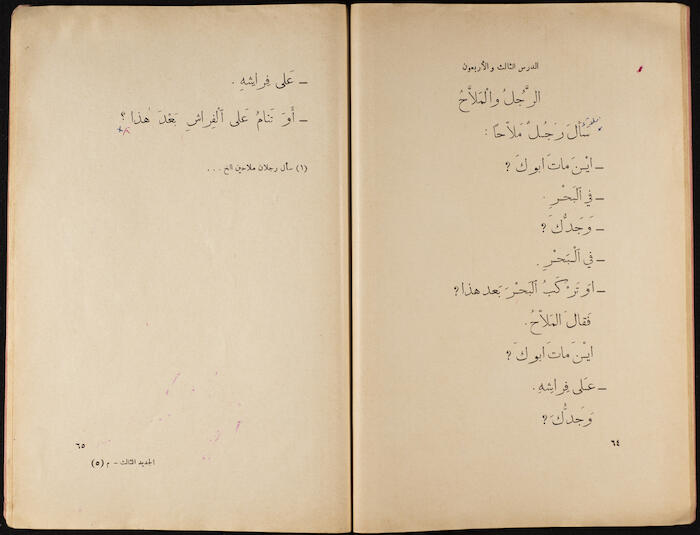 الدرس الثالث والأربعون
الرَّجُلُ وَالْمَلاَّحُ
سَأَلَ رَجُلٌ مَلاَّحًا :
ــ ايْنَ ماتَ ابوكَ ؟
ــ في ٱلبَحْرِ .
ــ وَجَدُّكَ ؟
ــ في ٱلبَحْرِ .
ــ اوَ تَرْكَبُ ٱلبَحْرَ بَعد هذا ؟
فَقالَ المَلاّحُ .
ايْنَ ماتَ ابوكَ ؟
ــ عَلى فِراشِهِ .
وَجَدُّكَ ؟
٦٤
ــ عَلى فِراشِهِ .
ــ أَوَ تَنامُ عَلى ٱلْفِراشِ بَعْدَ هٰذا ؟
(١) سأل رجلان ملاحين الخ . . .
٦٥
الجديد الثالث – م (٥)